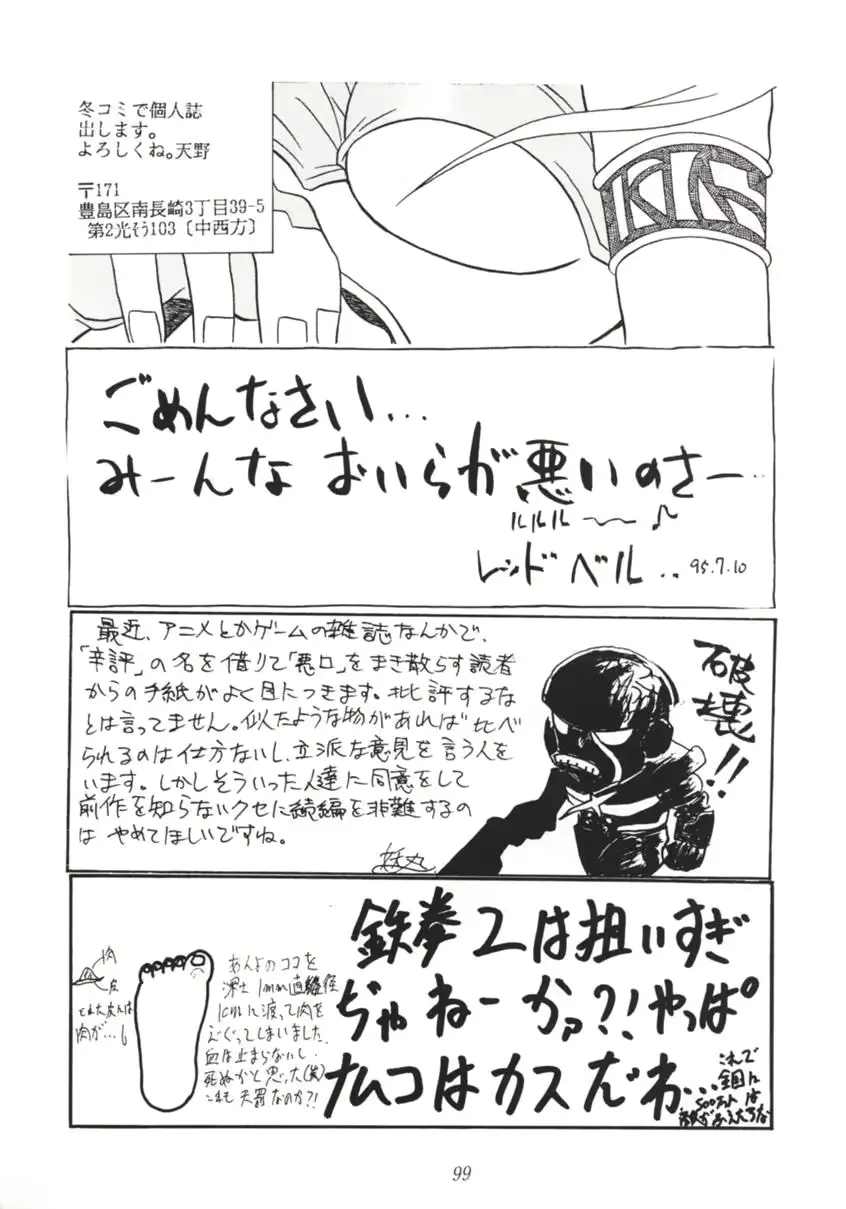 冬コミで個人誌
出します。
よろしくね。天野
〒171
豊島区南長崎3丁目39-5
第2光そう103〔中西方〕
ごめんなさい...
みーんな おいらが悪いのさー...
ルルル〜〜♪
レッドベル.. 95.7.10
最近、アニメとかゲームの雑誌なんかで、
「辛評」の名を借りて「悪口」をまき散らす読者
からの手紙がよく目につきます。批評するな
とは言ってません。似たような物があれば比べ
られるのは仕方ないし、立派な意見を言う人も
います。しかしそういった人達に同意をして
前作を知らないクセに続編を非難するの
は やめてほしいですね。
妖丸
破壊!!
肉
皮
とれた皮には
肉が...
あんよのココを
深さ1mm直径
1cmに渡って肉を
えぐってしまいました
血は止まらないし、
死ぬかと思った(笑)
これも天罰なのか?!
鉄拳2は狙いすぎ
ぢゃねーかァ?!やっぱ
ナムコはカスだわ...
これで
全国に
500万人は
敵がふえたろな
99